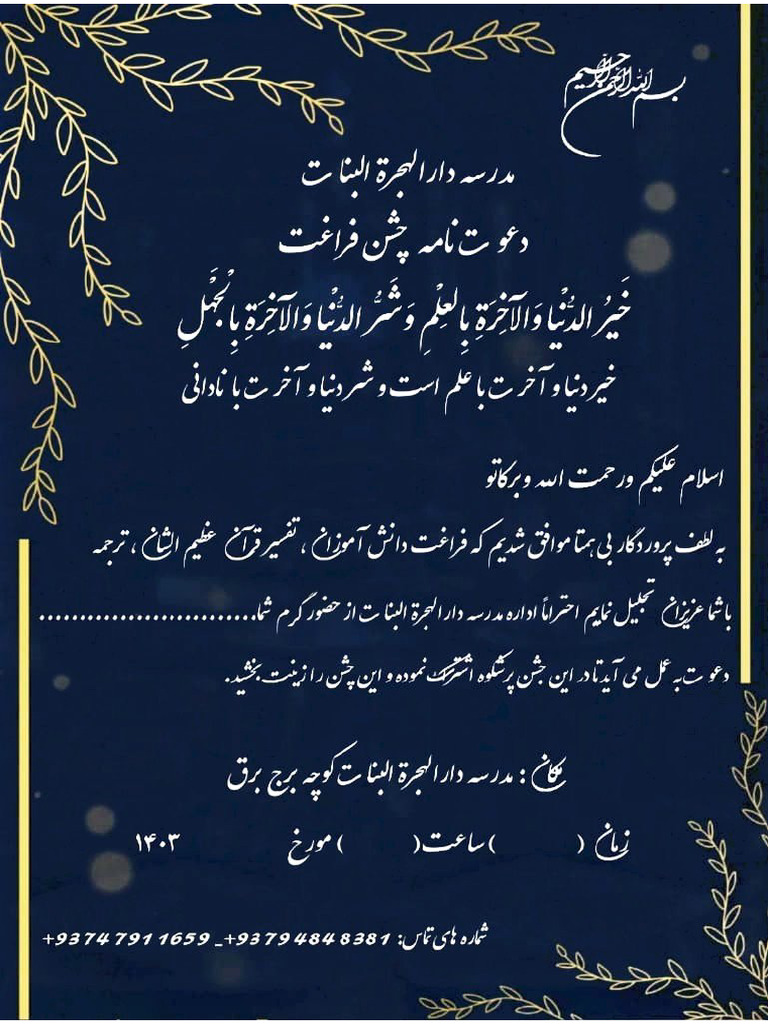 بسم الله الرحمن الرحیم
مدرسه دارالهجرة البنات
دعوت نامه چشن فراغت
خَيرُ الدُّنْيا وَالآخِرَةِ بِالعِلْمِ وَشَرُّ الدُّنْيا وَالآخِرَةِ بِالْجَهْلِ
خیر دنیا و آخرت با علم است و شر دنیا و آخرت با نادانی
اسلام علیکم ورحمت الله وبرکاتو
به لطف پروردگار بی همتا موافق شدیم که فراغت دانش آموزان ، تفسیر قرآن عظیم الشان ، ترجمه
با شما عزیزان تجلیل نمایم احتراماً اداره مدرسه دارالهجرة البنات از حضور گرم شما...........................
دعوت به عمل می آید تا در این جشن پرشکوه اشتراک نموده و این چشن را زینت بخشید.
مکان : مدرسه دارالهجرة البنات کوچه برج برق
زمان ( ) ساعت ( ) مورخ ۱۴۰۳
شماره های تماس: 93794848381+_ 93747911659+